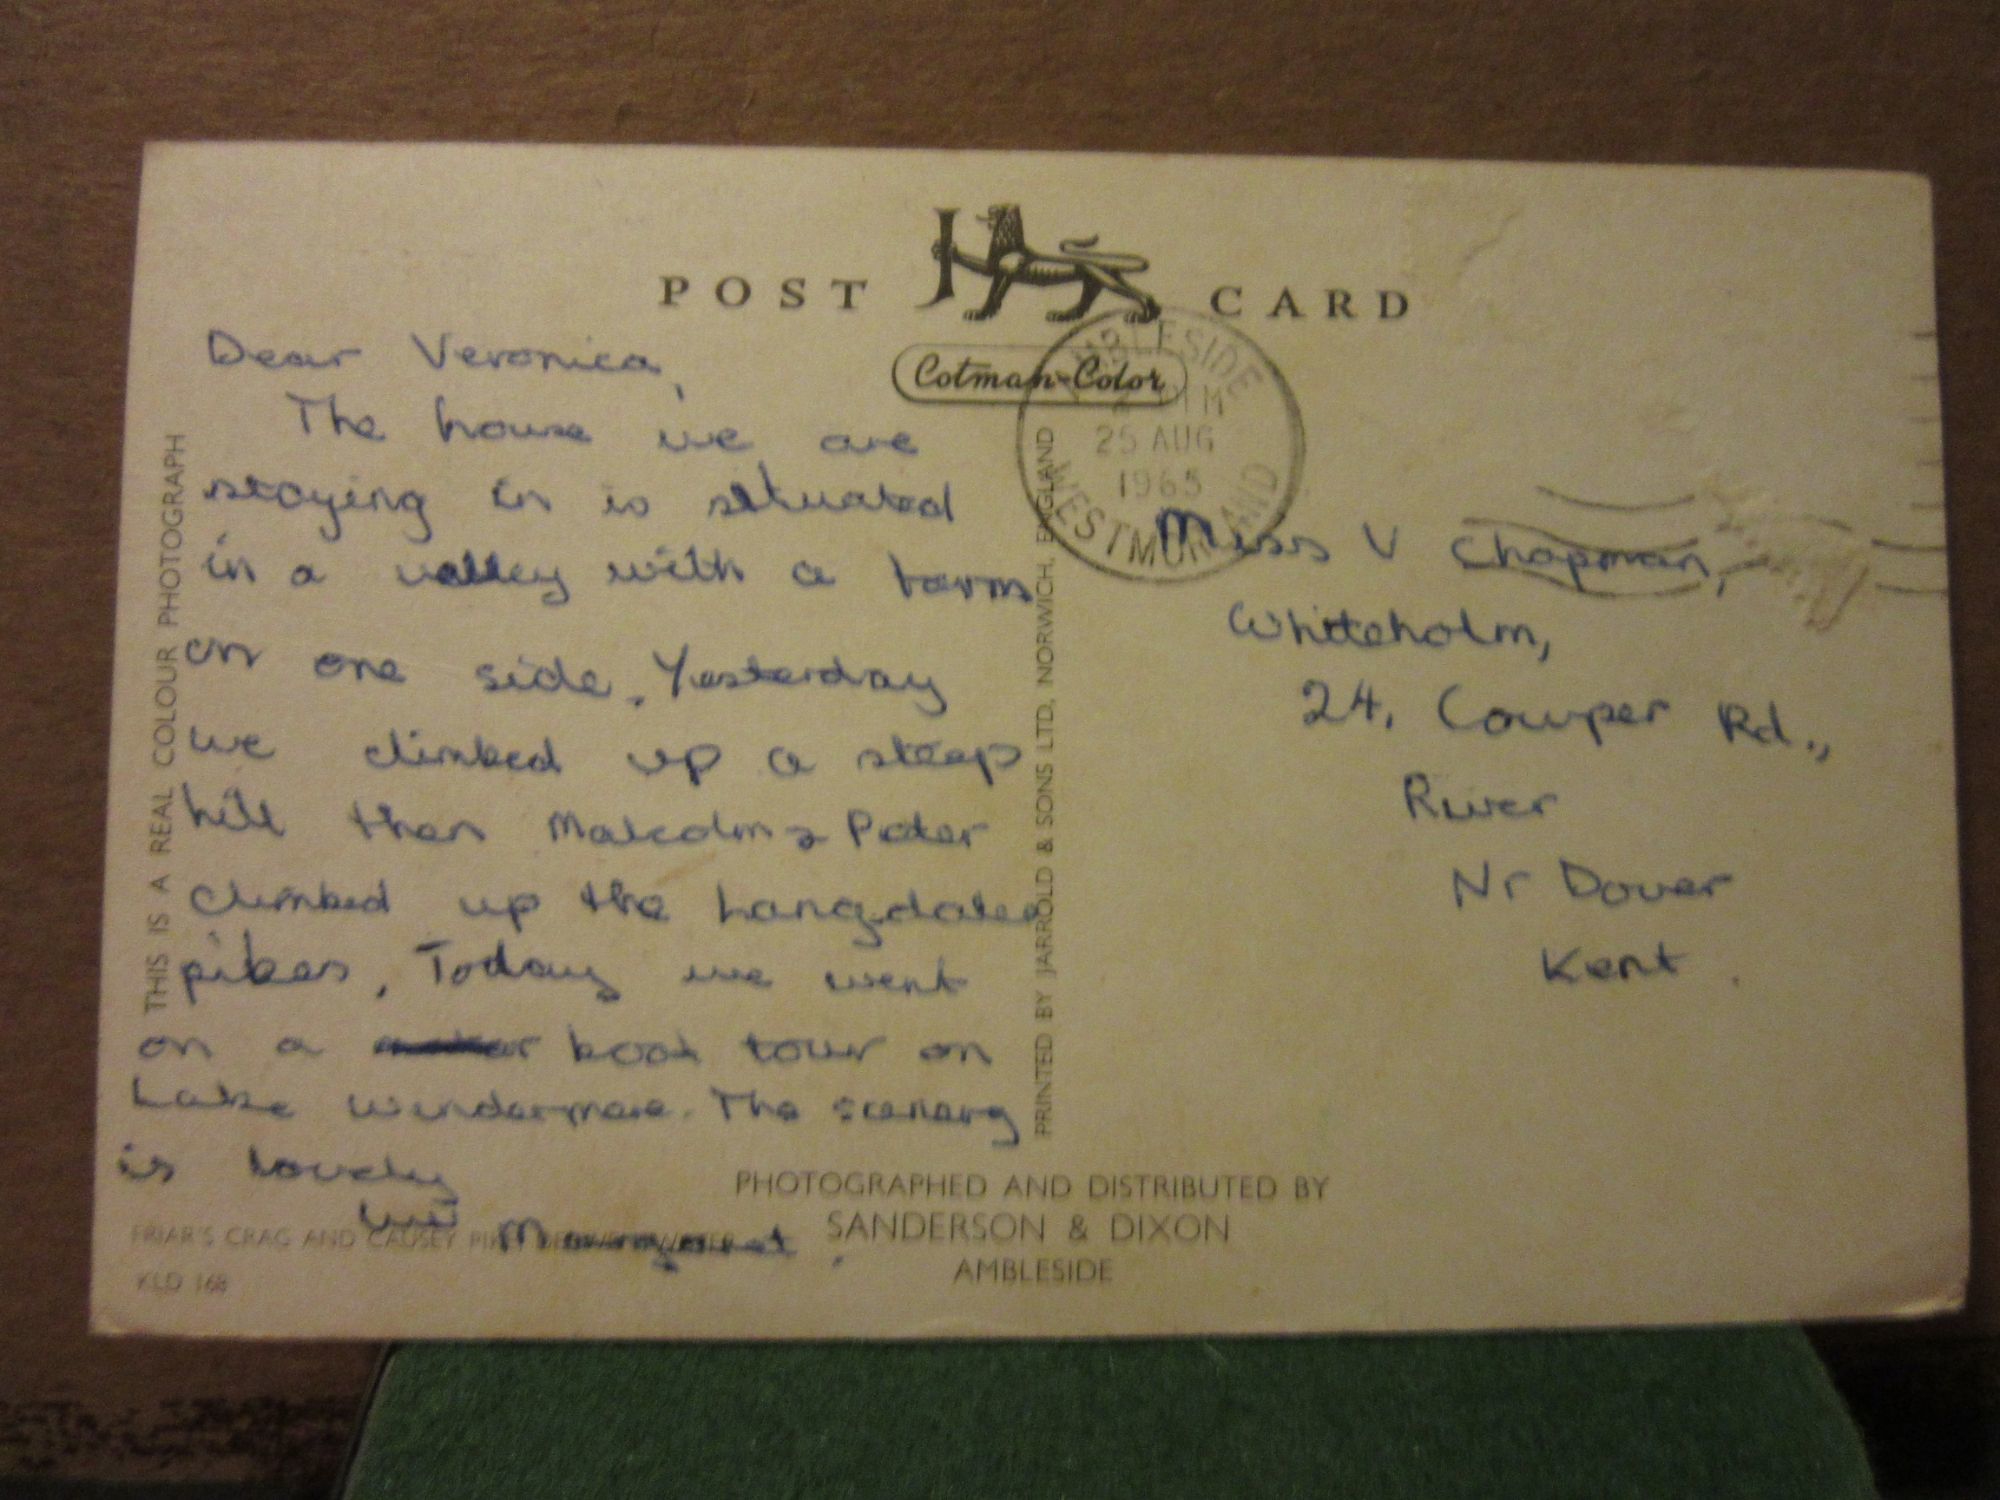 POST CARD
Cotman-Color
AMBLESIDE
PM
25 AUG
1965
WESTMORLAND
Dear Veronica,
The house we are
staying in is situated
in a valley with a farm
on one side. Yesterday
we climbed up a steep
hill then Malcolm & Peter
climbed up the Langdales
pikes. Today we went
on a boat tour on
Lake Windermere. The scenery
is lovely
Margaret.
Miss V Chapman,
Whiteholm,
24, Cowper Rd.,
River
Nr Dover
Kent.
THIS IS A REAL COLOUR PHOTOGRAPH
PRINTED BY JARROLD & SONS LTD, NORWICH, ENGLAND
PHOTOGRAPHED AND DISTRIBUTED BY
SANDERSON & DIXON
AMBLESIDE
FRIAR'S CRAG AND CAUSEY PIKE, DERWENTWATER
KLD 168